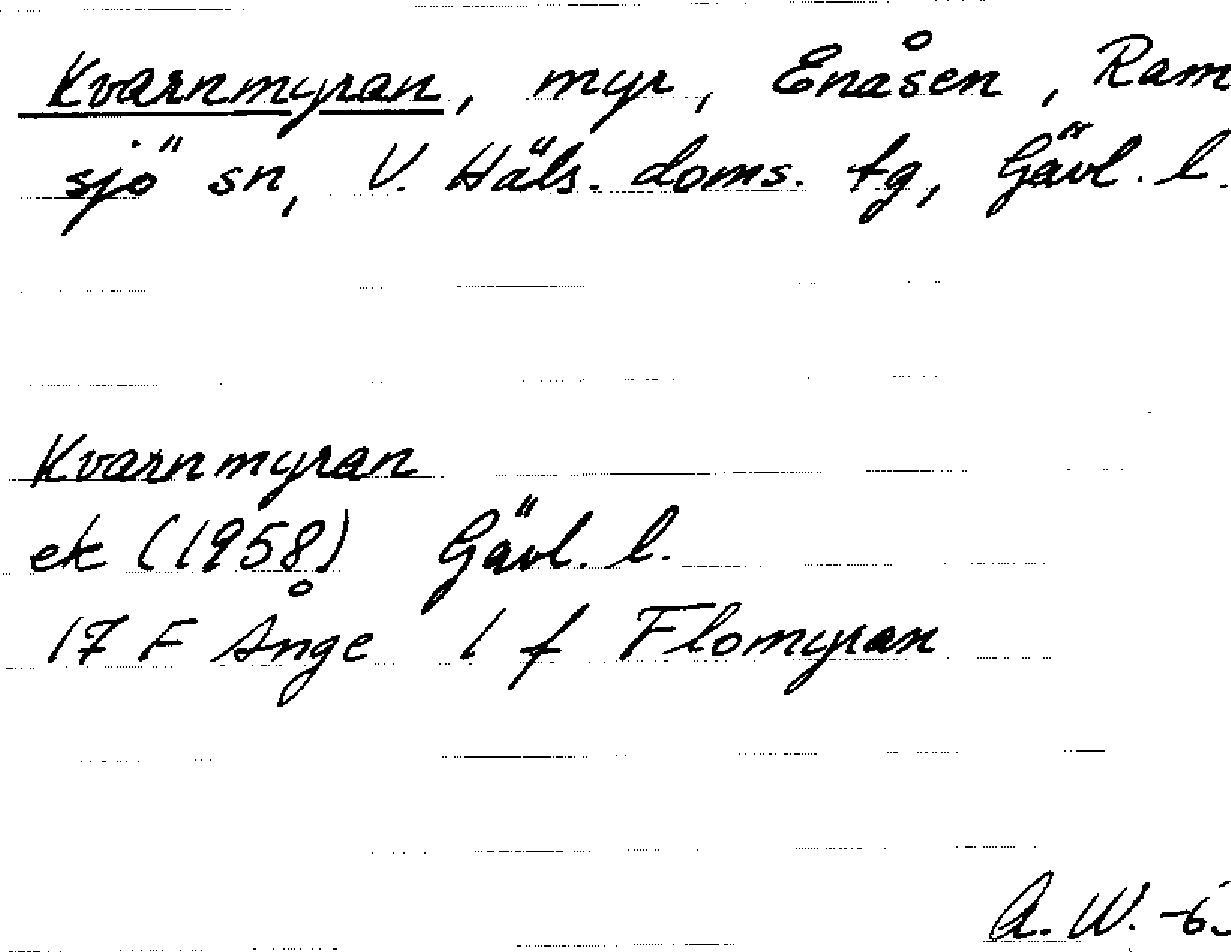 Kvarnmyran, myr, Enåsen, Ram
sjö sn, V. Häls. doms. tg, Gävl. l.
Kvarnmyran
ek (1958) Gävl. l.
17 F Ånge 1 f Flomyran
A. W.